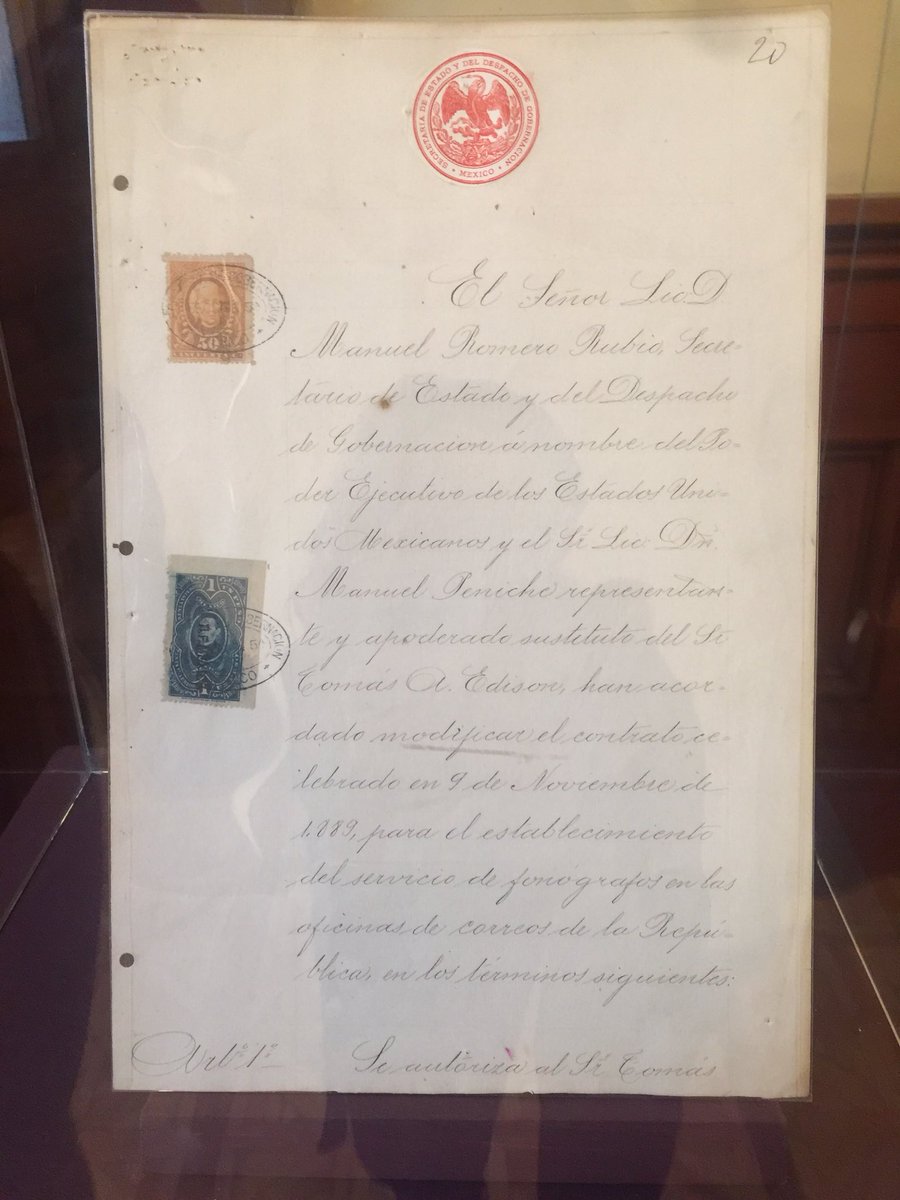 20
SECRETARIA DE ESTADO Y DEL DESPACHO DE GOBERNACION
• MEXICO •
50
1
1
El Señor Lic. D.
Manuel Romero Rubio, Secre-
tário de Estado y del Despacho
de Gobernacion á nombre del Po-
der Ejecutivo de los Estados Uni-
dos Mexicanos y el Sr. Lic. Dn.
Manuel Peniche representan-
te y apoderado sustituto del Sr.
Tomás A. Edison, han acor-
dado modificar el contrato ce-
lebrado en 9 de Noviembre de
1.889, para el establecimiento
del servicio de fonógrafos en las
oficinas de correos de la Repú-
blica, en los términos siguientes:
Arto. 1o. Se autoriza al Sr. Tomás